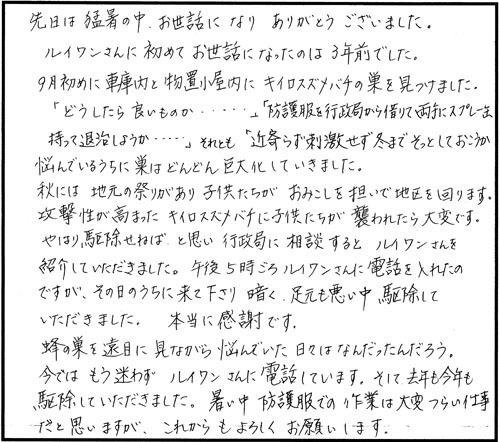 先日は猛暑の中、お世話になり ありがとう ございました。
ルイワンさんに初めてお世話になったのは3年前でした。
9月初めに車庫内と物置小屋内にキイロスズメバチの巣を見つけました。
「どうしたら良いものか・・・・・・」「防護服を行政局から借りて両手にスプレーを
持って退治しようか・・・・・」それとも「近寄らず刺激せず冬までそっとしておこうか
悩んでいるうちに巣はどんどん巨大化していきました。
秋には 地元の祭りがあり子供たちが おみこしを担いで地区を回ります。
攻撃性が高まった キイロスズメバチに子供たちが 襲われたら大変です。
やはり、駆除せねば と思い 行政局に 相談すると ルイワンさんを
紹介していただきました。午後5時ごろルイワンさんに電話を入れたの
ですが、その日のうちに来て下さり 暗く、足元も悪い中 駆除して
いただきました。 本当に感謝です。
蜂の巣を遠目に見ながら悩んでいた日々はなんだったんだろう。
今では もう迷わず ルイワンさんに電話しています。そして去年も今年も
駆除していただきました。暑い中 防護服での作業は大変つらい仕事
だと思いますが、これからもよろしくお願いします。